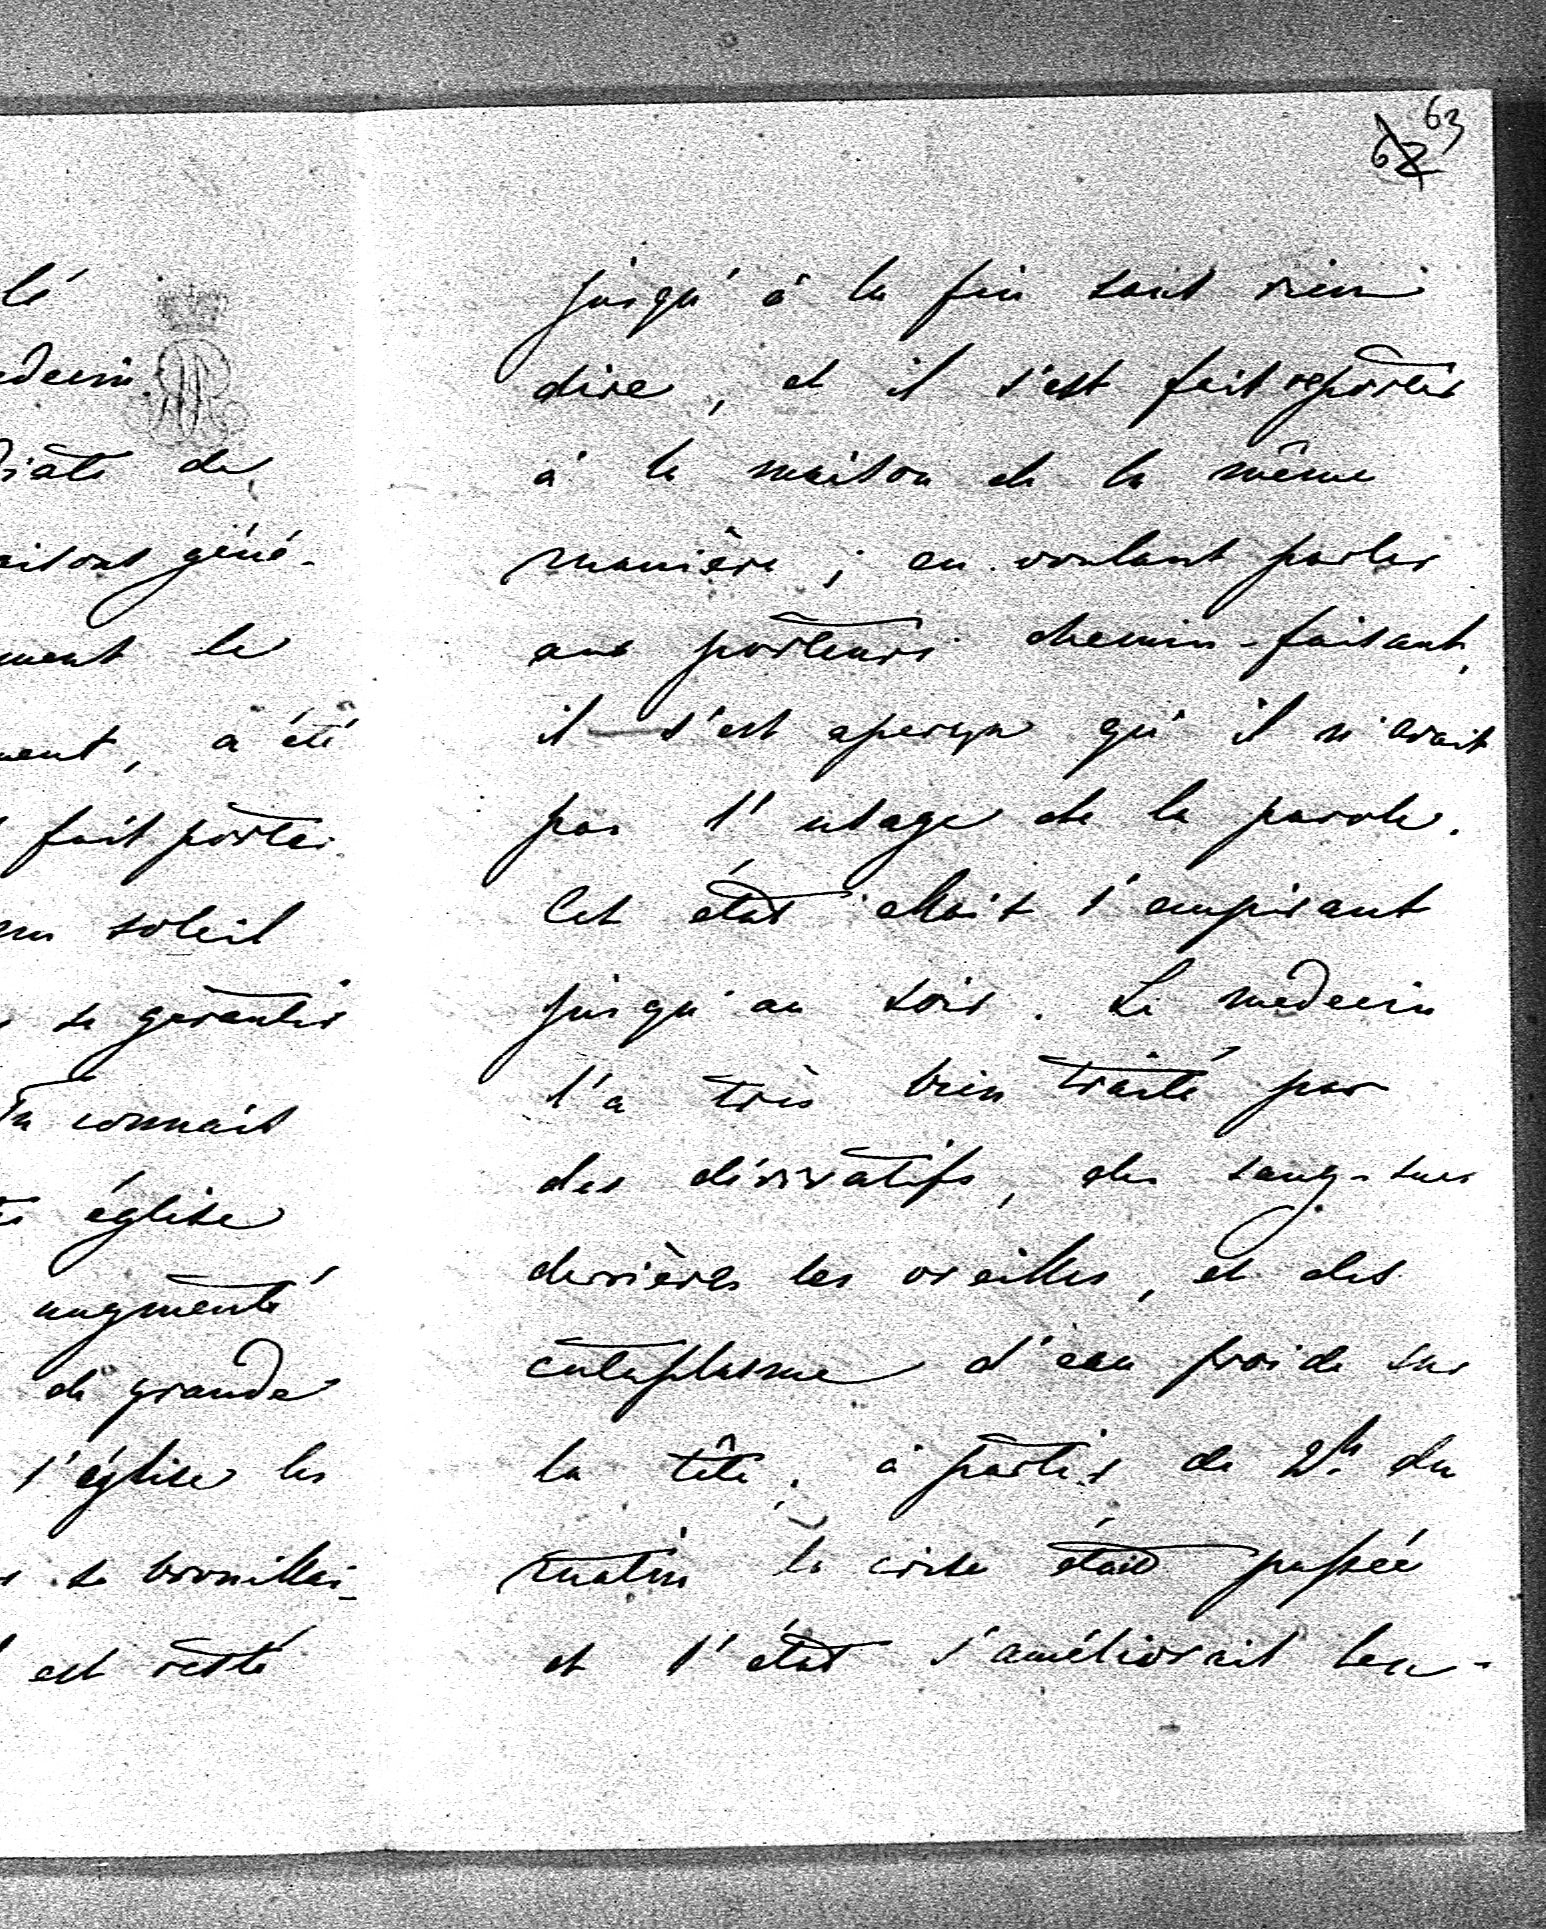 63
62
lé
edecin
diate de
aisons géné-
ment le
ment, a été
fait porter
soleil
se garantir
Tu connais
église
augmenté
de grande
l'église les
se brouiller-
est resté
jusqu'à la fin sans rien
dire, et il s'est fait reporter
à la maison de la même
manière; en voulant parler
aux porteurs chemin-faisant,
il s'est aperçu qu'il n'avait
pas l'usage de la parole.
Cet état allait s'empirant
jusqu'au soir. Le medecin
l'a très bien traité par
des dérivatifs, des sang-sues
derrières les oreilles, et des
cataplasme d'eau froide sur
la tête; à partir de 2h. du
matin la crise était passée
et l'état s'améliorait len-